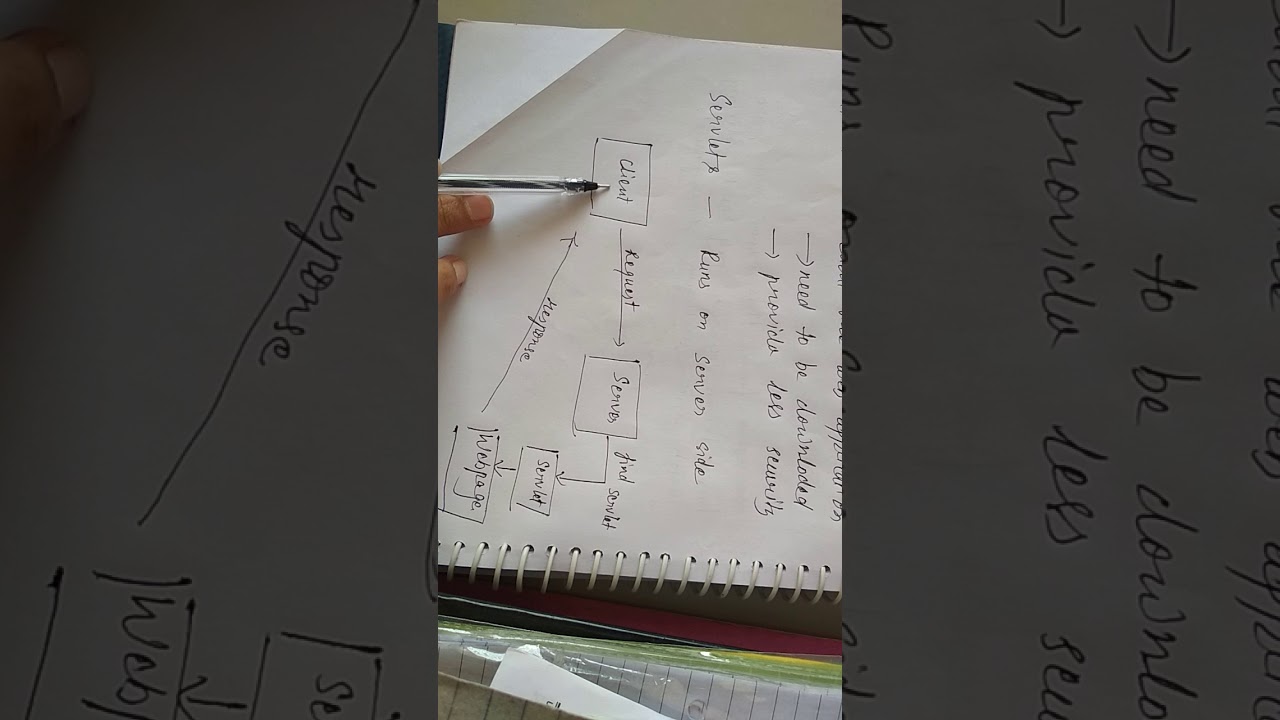 → need to be downloded
→ provide less security
Servlets — Runs on Server side
Client
Request
Server
find servlet
Servlet
Webpage
response